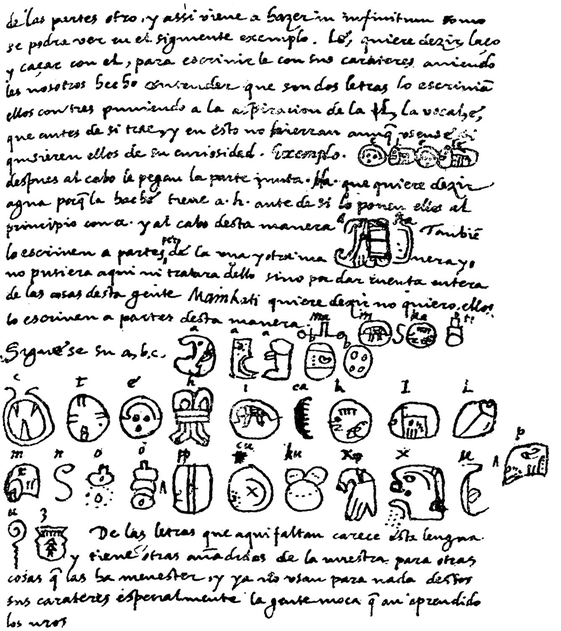 de las partes otro, y assi viene a hazer in infinitum como
se podra ver en el siguiente exemplo. Lé, quiere dezir laço
y caçar con el, para escrivirle con sus carateres, aviendo
les nosotros hecho entender que son dos letras lo escrivian
ellos con tres puniendo a la aspiracion de la la vocal é,
que antes de si trae, y en esto no hierran aunq̃ si
quisieren ellos de su curiosidad. Exemplo.
despues al cabo le pegan la parte junta. Ha. que quiere dezir
agua porq̃ la haché tiene a. h. ante de si lo ponen ellos al
principio con a. y al cabo desta manera ha Tambiē
lo escriven a partes, de la una y otra ma nera, yo
no pusiera aqui ni tratara dello sino por dar cuenta entera
de las cosas desta gente Mainkati quiere dezir no quiero, ellos
lo escriven a partes desta manera: ma i n ka ti
Siguese su a, b, c. a a a b b
c t é h i ca k l l
m n o o pp cu ku x x u p
u z De las letras que aqui faltan carece esta lengua
y tiene otras añadidas de la nuestra para otras
cosas q̃ las ha menester, y ya no usan para nada destos
sus carateres especialmente la gente moça q̃ an aprendido
los nros